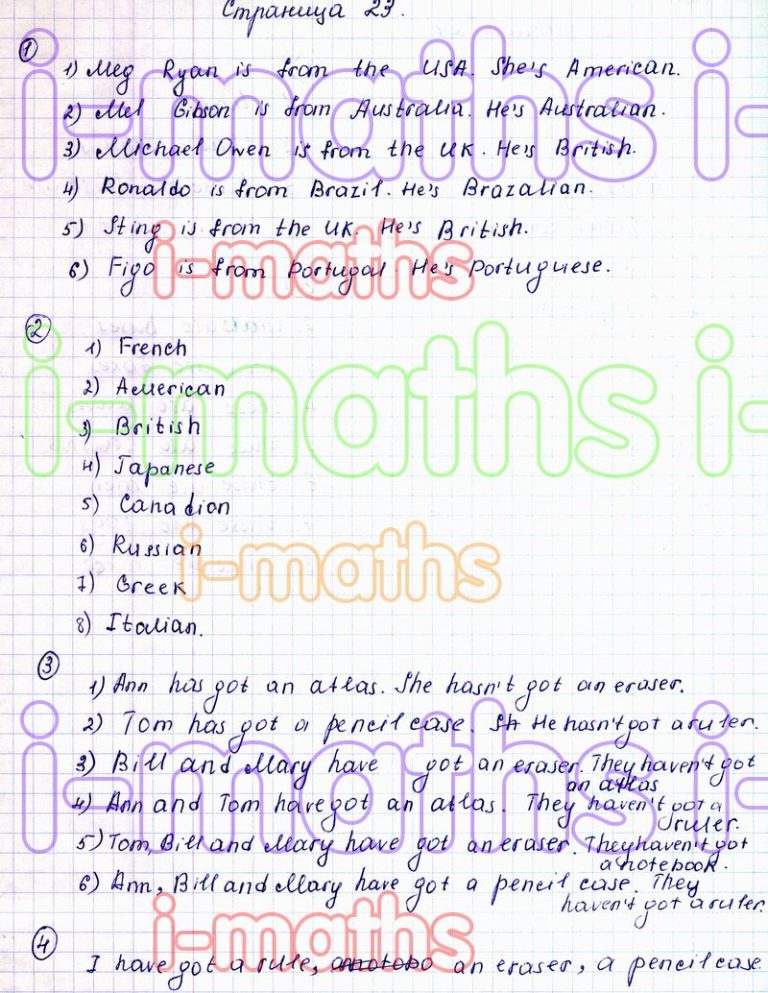 Страница 23.
① 1) Meg Ryan is from the USA. She's American.
2) Mel Gibson is from Australia. He's Australian.
3) Michael Owen is from the UK. He's British.
4) Ronaldo is from Brazil. He's Brazalian.
5) Sting is from the UK. He's British.
6) Figo is from Portugal. He's Portuguese.
② 1) French
2) American
3) British
4) Japanese
5) Canadion
6) Russian
7) Greek
8) Italian.
③ 1) Ann has got an atlas. She hasn't got an eraser.
2) Tom has got a pencil case. He hasn't got a ruler.
3) Bill and Mary have got an eraser. They haven't got
an atlas
4) Ann and Tom have got an atlas. They haven't got a
ruler.
5) Tom, Bill and Mary have got an eraser. They haven't got
a notebook.
6) Ann, Bill and Mary have got a pencil case. They
haven't got a ruler.
④ I have got a rule, an eraser, a pencil case
i-maths i-
i-maths
i-maths i-
i-maths
i-maths i-
i-maths